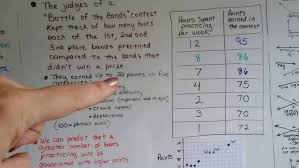 The judges of a
"Battle of the Bands" contest
kept track of how many hours
each of the 1st, 2nd and
3rd place bands practiced
compared to the bands that
didn't win a prize.
They earned up to 20 points in five
Crowd Appeal
Appearance
(100 = perfect score)
We can predict that a
greater number of hours
practicing will be
associated with higher points
Hours Spent practicing per week
Points earned in the contest
12 95
8 86
7 86
4 75
3 70
2 70
3 72
Points